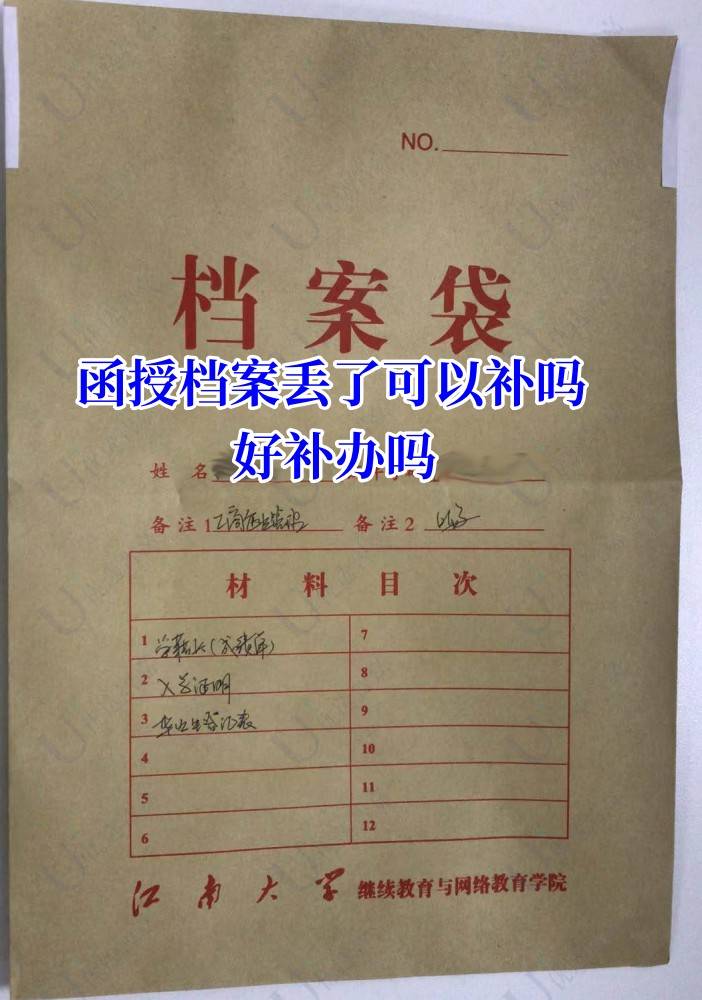 NO.
档案袋
函授档案丢了可以补吗
好补办吗
姓 名
备注1 工商企业管理 备注2
材料目次
1 学籍卡(成绩单) 7
2 入学证明 8
3 毕业生登记表 9
4 10
5 11
6 12
江南大学 继续教育与网络教育学院